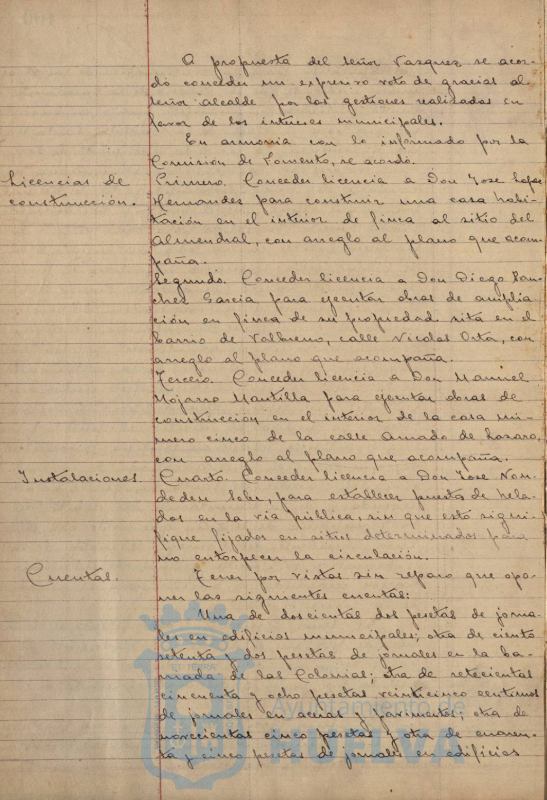 A propuesta del señor Vasquez se acor-
dó conceder un expresivo voto de gracias al
señor alcalde por las gestiones realizadas en
favor de los intereses municipales.
En armonia con lo informado por la
Comision de Fomento, se acordó.
Licencias de
construcción.
Primero. Conceder licencia a Don Jose Lopez
Hernandes para construir una casa habi-
tación en el interior de finca al sitio del
Almendral, con arreglo al plano que acom-
paña.
Segundo. Conceder licencia a Don Diego San-
chez Garcia para ejecutar obras de amplia-
ción en finca de su propiedad sita en el
barrio de Valbueno, calle Nicolas Orta, con
arreglo al plano que acompaña.
Tercero. Conceder licencia a Don Manuel
Mojarro Mantilla para ejecutar obras de
construcción en el interior de la casa nú-
mero cinco de la calle Amado de Lazaro,
con arreglo al plano que acompaña.
Instalaciones.
Cuarto. Conceder licencia a Don Jose Nom-
dedeu para establecer puesto de hela-
dos en la via pública, sin que esto signi-
fique fijados en sitios determinados para
no entorpecer la circulación.
Cuentas.
Tener por vistas sin reparo que opo-
ner las siguientes cuentas:
Una de doscientas dos pesetas de jorna-
les en edificios municipales; otra de ciento
setenta y dos pesetas de jornales en la ba-
rriada de las Colonias; otra de setecientas
cincuenta y ocho pesetas veinticinco centimos
de jornales en aceras y pavimentos; otra de
novecientas cinco pesetas y otra de cuaren-
ta y cinco pesetas de jornales en edificios
Ayuntamiento de
HUELVA